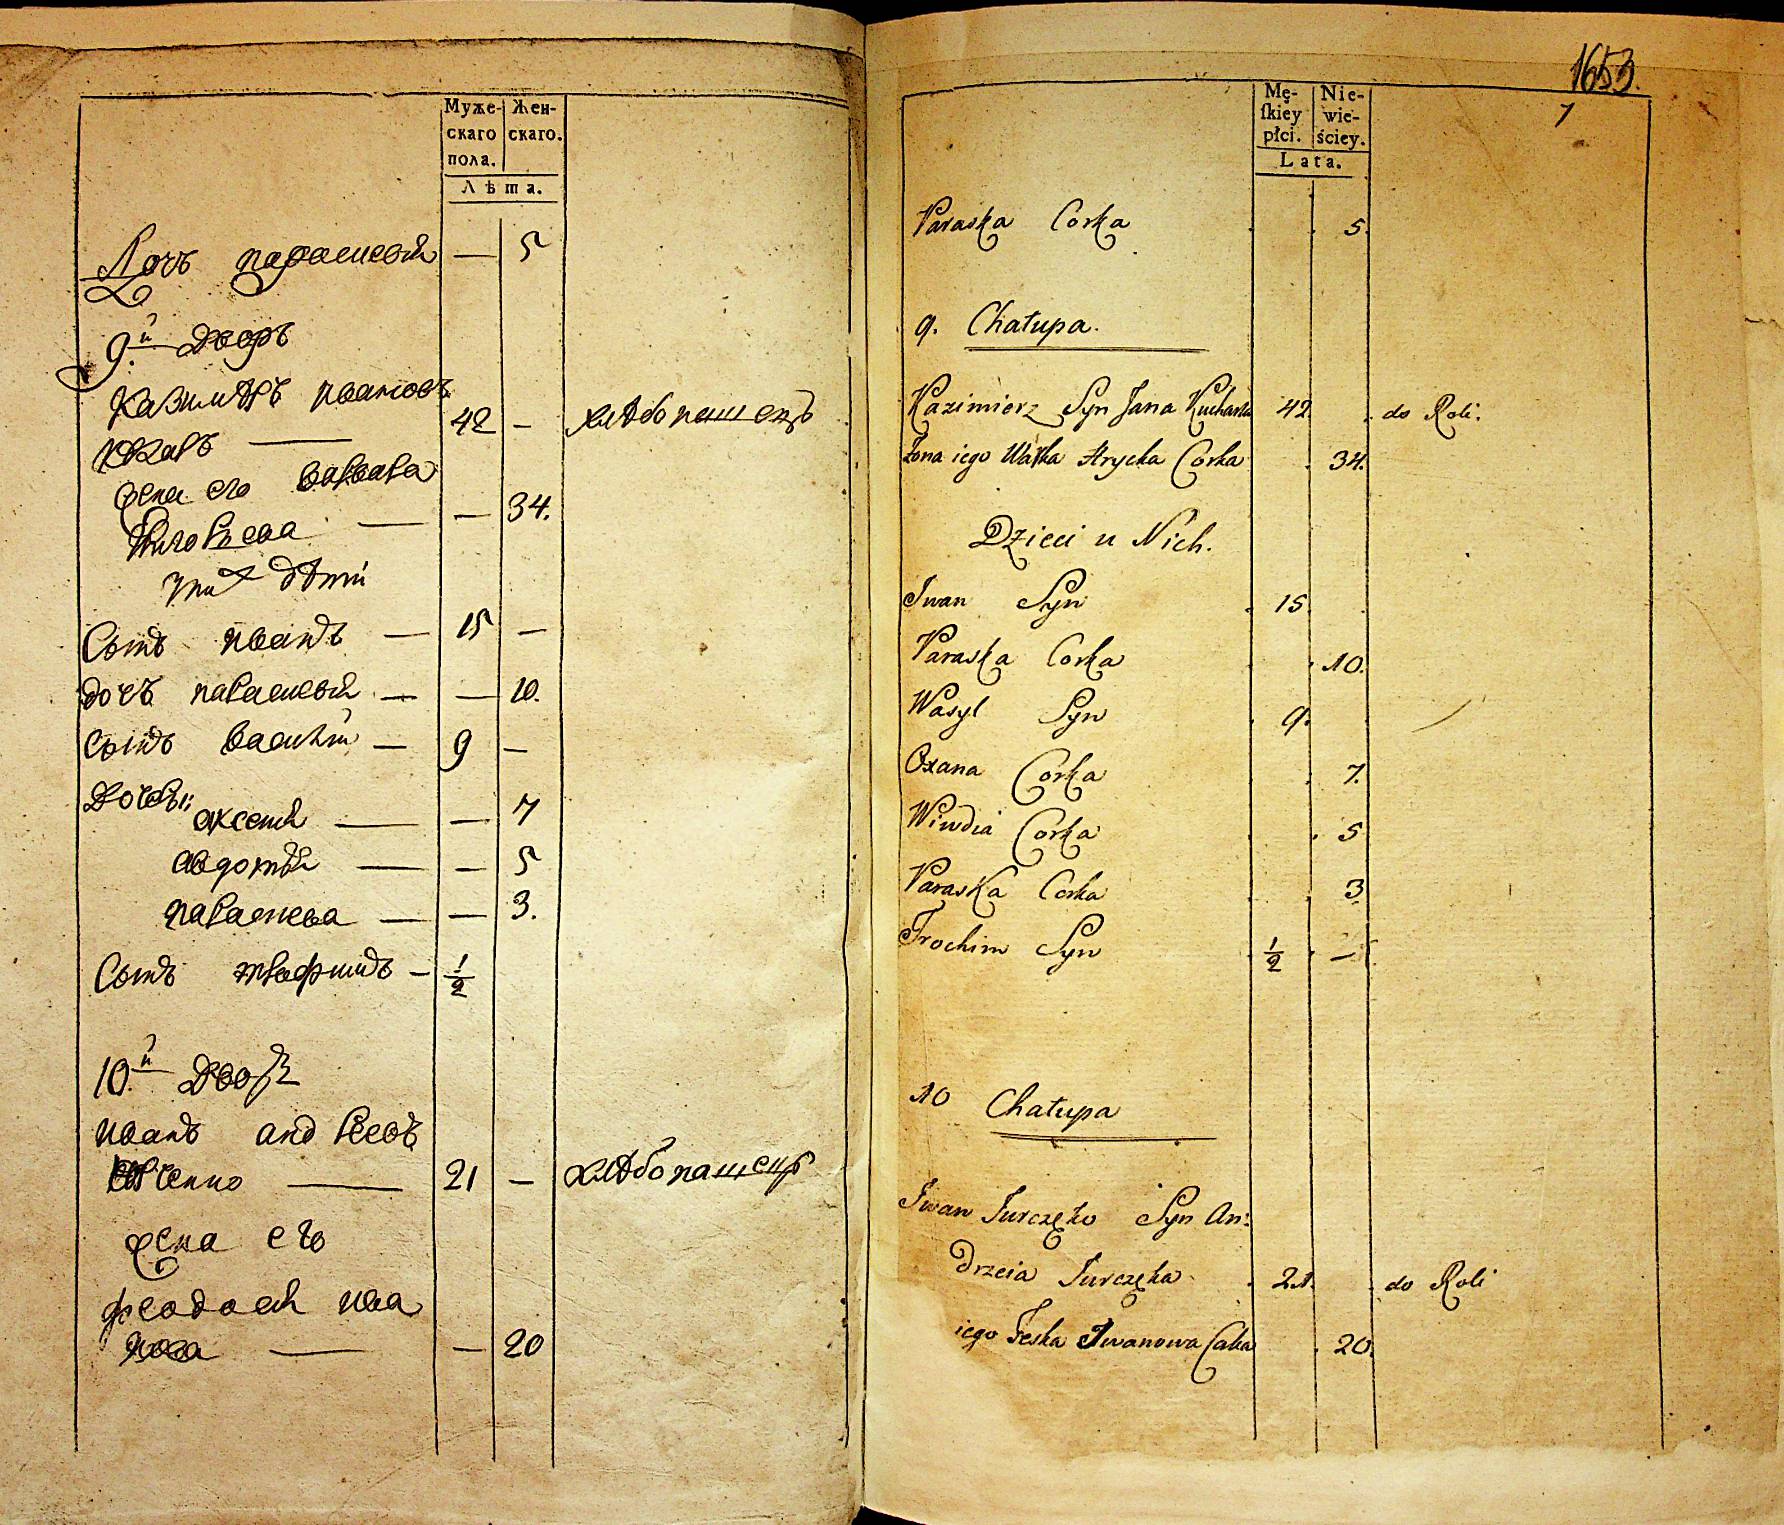 Муже-
скаго
пола.
Жен-
скаго.
Лѣта.
Дочь парасковiя — 5
9.й дворъ
Казимѣръ ивановъ
42 — хлѣбопашецъ
жена его варвара
— — 34.
у них дѣти
Сынъ иванъ — 15 —
дочь парасковiя — — 10.
сынъ василiй — 9 —
Дочери:
аксенiя — — 7
авдотья — — 5
парасковья — — 3.
Сынъ трофимъ — 1/2
10.й дворъ
иванъ андреевъ
21 — хлѣбопашецъ
жена его
феодосiя ива
нова — — 20
1653.
7
Mę-
skiey
płci.
Nie-
wie-
ściey.
Lata.
Paraska Corka 5.
9. Chałupa.
Kazimierz Syn Jana 42. do Roli.
Żona iego Waska Corka 34.
Dzieci u Nich.
Iwan Syn 15.
Paraska Corka 10.
Wasyl Syn 9.
Oxana Corka 7.
Corka 5
Paraska Corka 3.
Trochim Syn 1/2 —
10 Chałupa
Iwan Jurczęko Syn An:
drzeia Jurczęka 21. do Roli
iego Feska Iwanowa 20.